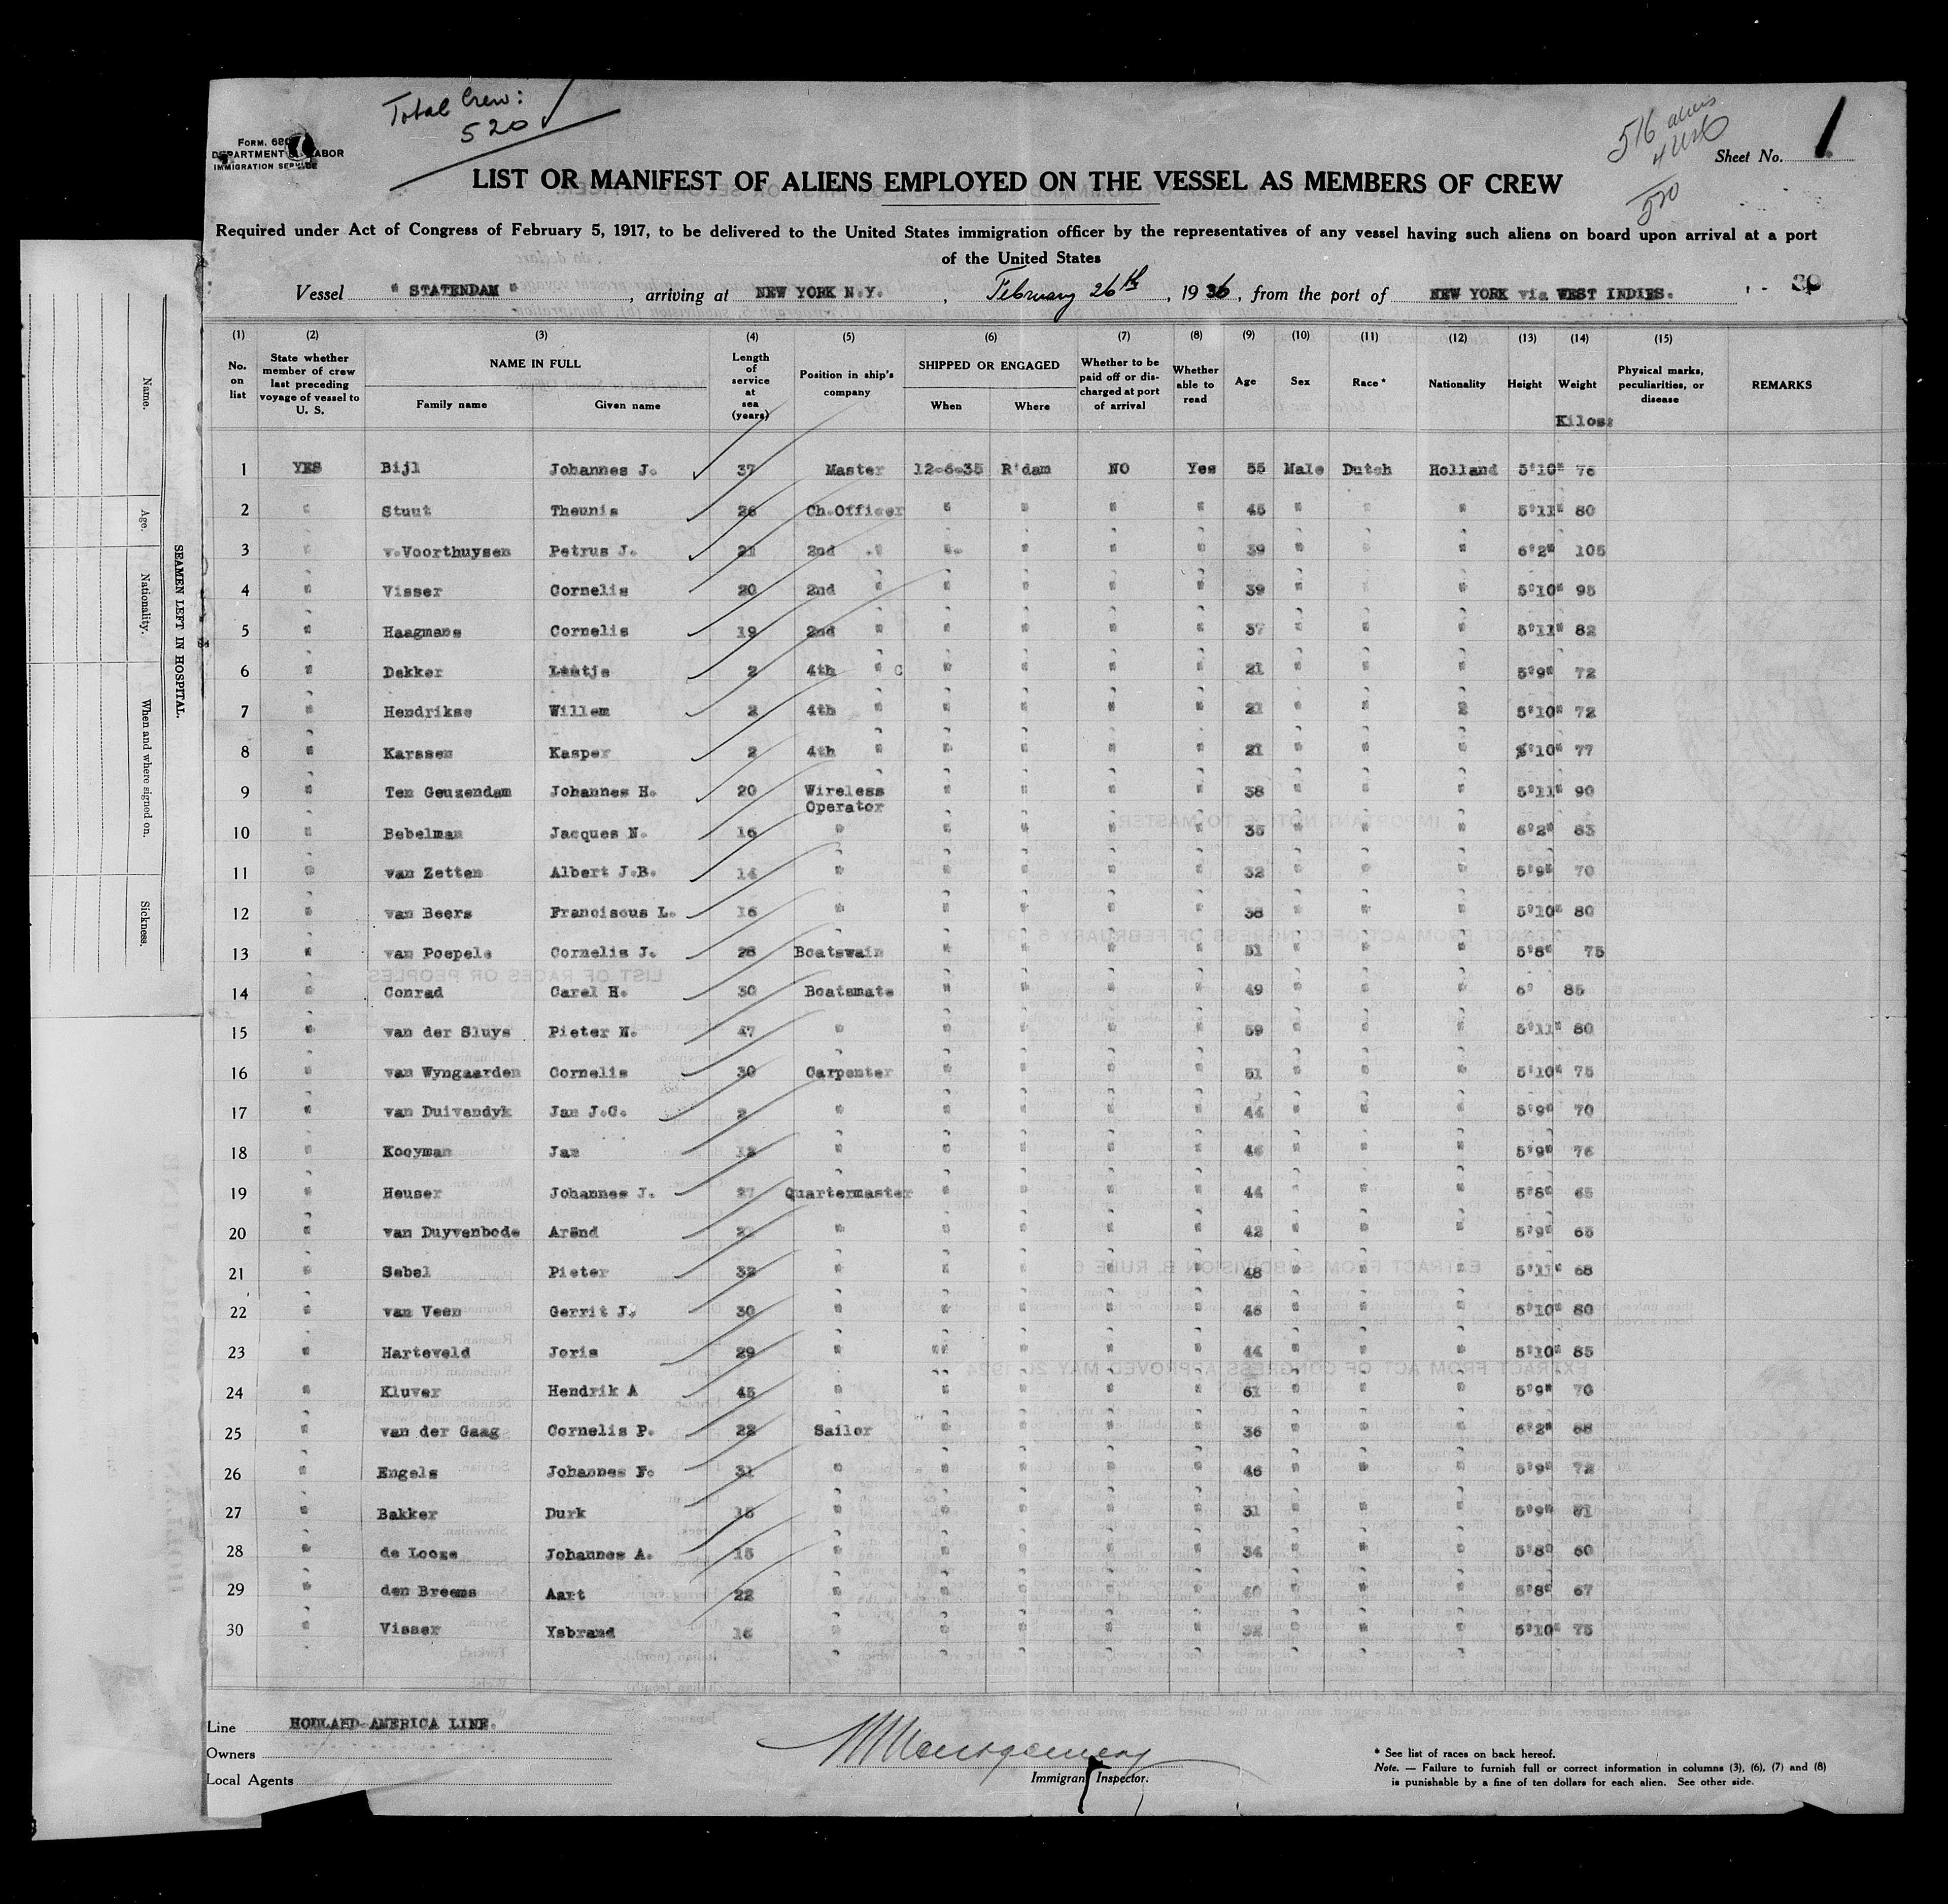 Total Crew:
520
516 aliens
4 USC
520
FORM. 680
DEPARTMENT LABOR
IMMIGRATION SERVICE
Sheet No. 1
LIST OR MANIFEST OF ALIENS EMPLOYED ON THE VESSEL AS MEMBERS OF CREW
Required under Act of Congress of February 5, 1917, to be delivered to the United States immigration officer by the representatives of any vessel having such aliens on board upon arrival at a port
of the United States
Vessel " STATENDAM " , arriving at NEW YORK N.Y. , February 26th , 1936 , from the port of NEW YORK via WEST INDIES.
(1) (2) (3) (4) (5) (6) (7) (8) (9) (10) (11) (12) (13) (14) (15)
No. on list State whether member of crew last preceding voyage of vessel to U. S. NAME IN FULL Family name Given name Length of service at sea (years) Position in ship's company SHIPPED OR ENGAGED When Where Whether to be paid off or discharged at port of arrival Whether able to read Age Sex Race * Nationality Height Weight Physical marks, peculiarities, or disease REMARKS
Kilos:
1 YES Bijl Johannes J. 37 Master 12-6-35 R'dam NO Yes 55 Male Dutch Holland 5'10" 76
2 " Stuut Theunis 26 Ch.Officer " " " " 45 " " " 5'11" 80
3 " v.Voorthuysen Petrus J. 21 2nd " " " " " 39 " " " 6'2" 105
4 " Visser Cornelis 20 2nd " " " " " 39 " " " 5'10" 95
5 " Haagmans Cornelis 19 2nd " " " " " 37 " " " 5'11" 82
6 " Dekker 2 4th " C " " " " 21 " " " 5'9" 72
7 " Hendrikse Willem 2 4th " " " " " 21 " " " 5'10" 72
8 " Karssen Kasper 2 4th " " " " " 21 " " " 5'10" 77
9 " Ten Geuzendam Johannes H. 20 Wireless Operator " " " " 38 " " " 5'11" 90
10 " Bebelman Jacques N. 16 " " " " " 35 " " " 6'2" 83
11 " van Zetten Albert J.B. 14 " " " " " 32 " " " 5'9" 70
12 " van Beers Franciscus L. 16 " " " " " 38 " " " 5'10" 80
13 " van Poepele Cornelis J. 28 Boatswain " " " " 51 " " " 5'8" 75
14 " Conrad Carel H. 30 Boatsmate " " " " 49 " " " 6' 85
15 " van der Sluys Pieter N. 47 " " " " " 59 " " " 5'11" 80
16 " van Wyngaarden Cornelis 30 Carpenter " " " " 51 " " " 5'10" 75
17 " van Duivendyk Jan J.C. 2 " " " " " 44 " " " 5'9" 70
18 " Kooyman Jan 12 " " " " " 46 " " " 5'9" 76
19 " Heuser Johannes J. 27 Quartermaster " " " " 44 " " " 5'8" 65
20 " van Duyvenbode Arend " " " " " 42 " " " 5'9" 65
21 " Sebel Pieter 32 " " " " " 48 " " " 5'11" 68
22 " van Veen Gerrit J. 30 " " " " " 46 " " " 5'10" 80
23 " Harteveld Joris 29 " " " " " 44 " " " 5'10" 85
24 " Kluver Hendrik A 45 " " " " " 61 " " " 5'9" 70
25 " van der Gaag Cornelis P. 22 Sailor " " " " 36 " " " 6'2" 68
26 " Engels Johannes F. 31 " " " " " 46 " " " 5'9" 72
27 " Bakker Durk 15 " " " " " 31 " " " 5'9" 81
28 " de Looze Johannes A. 15 " " " " " 34 " " " 5'8" 60
29 " den Breems Aart 22 " " " " " 40 " " " 5'8" 67
30 " Visser Ysbrand 16 " " " " " 32 " " " 5'10" 75
Line HOLLAND-AMERICA LINE.
Owners
Local Agents
Immigrant Inspector.
* See list of races on back hereof.
Note. — Failure to furnish full or correct information in columns (3), (6), (7) and (8)
is punishable by a fine of ten dollars for each alien. See other side.
SEAMEN LEFT IN HOSPITAL.
Name.
Age.
Nationality.
When and where signed on.
Sickness.